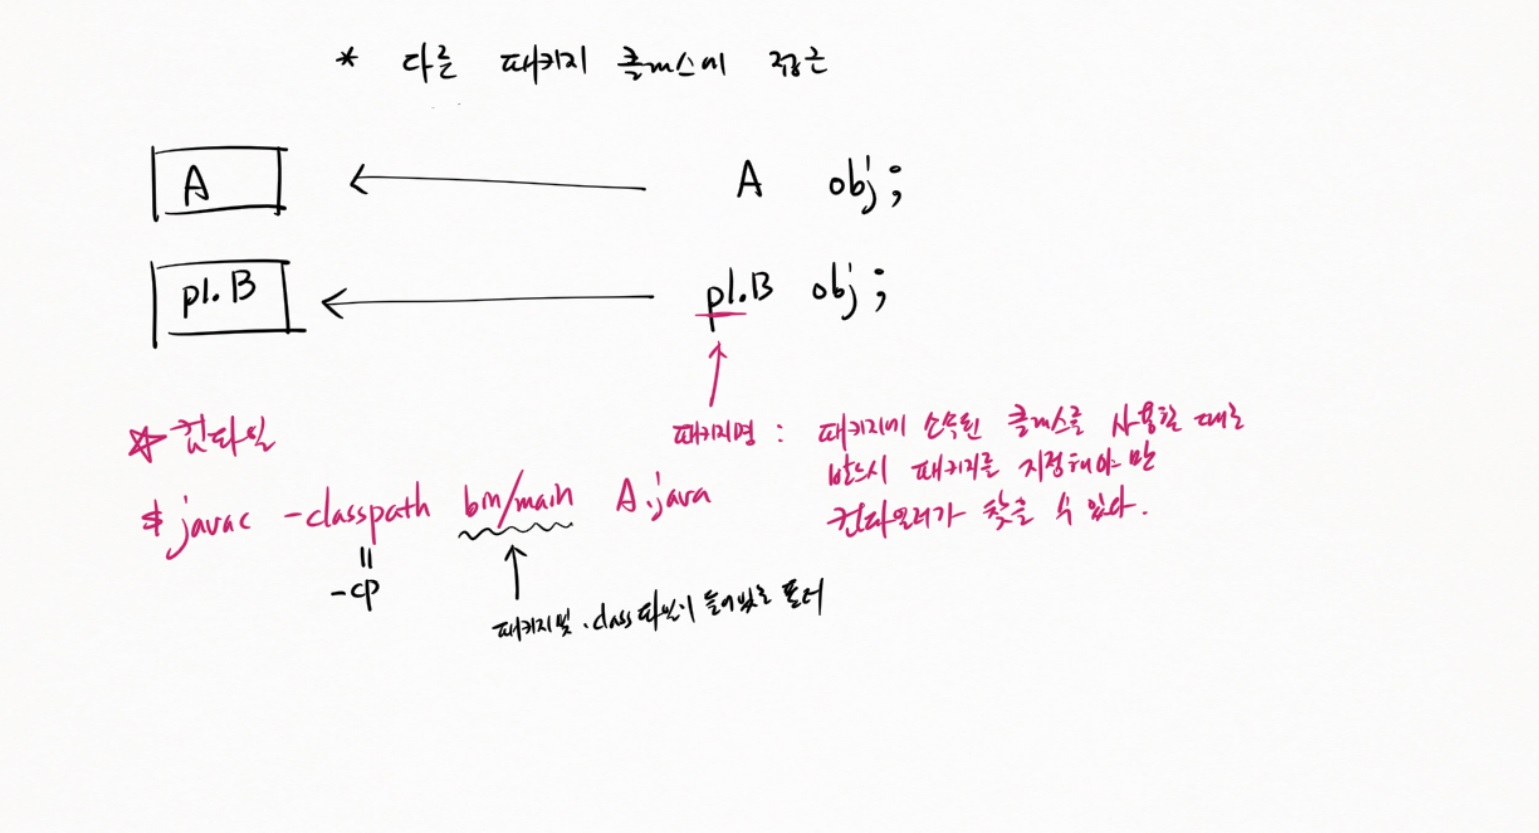 * 다른 패키지 클래스에 접근
A ← A obj;
p1.B ← p1.B obj;
패키지명 : 패키지에 소속된 클래스를 사용할 때는
반드시 패키지를 지정해야만
컴파일러가 찾을 수 있다.
☆ 컴파일
$ javac -classpath bin/main A.java
=
-cp
패키지 및 .class 파일이 들어있는 폴더